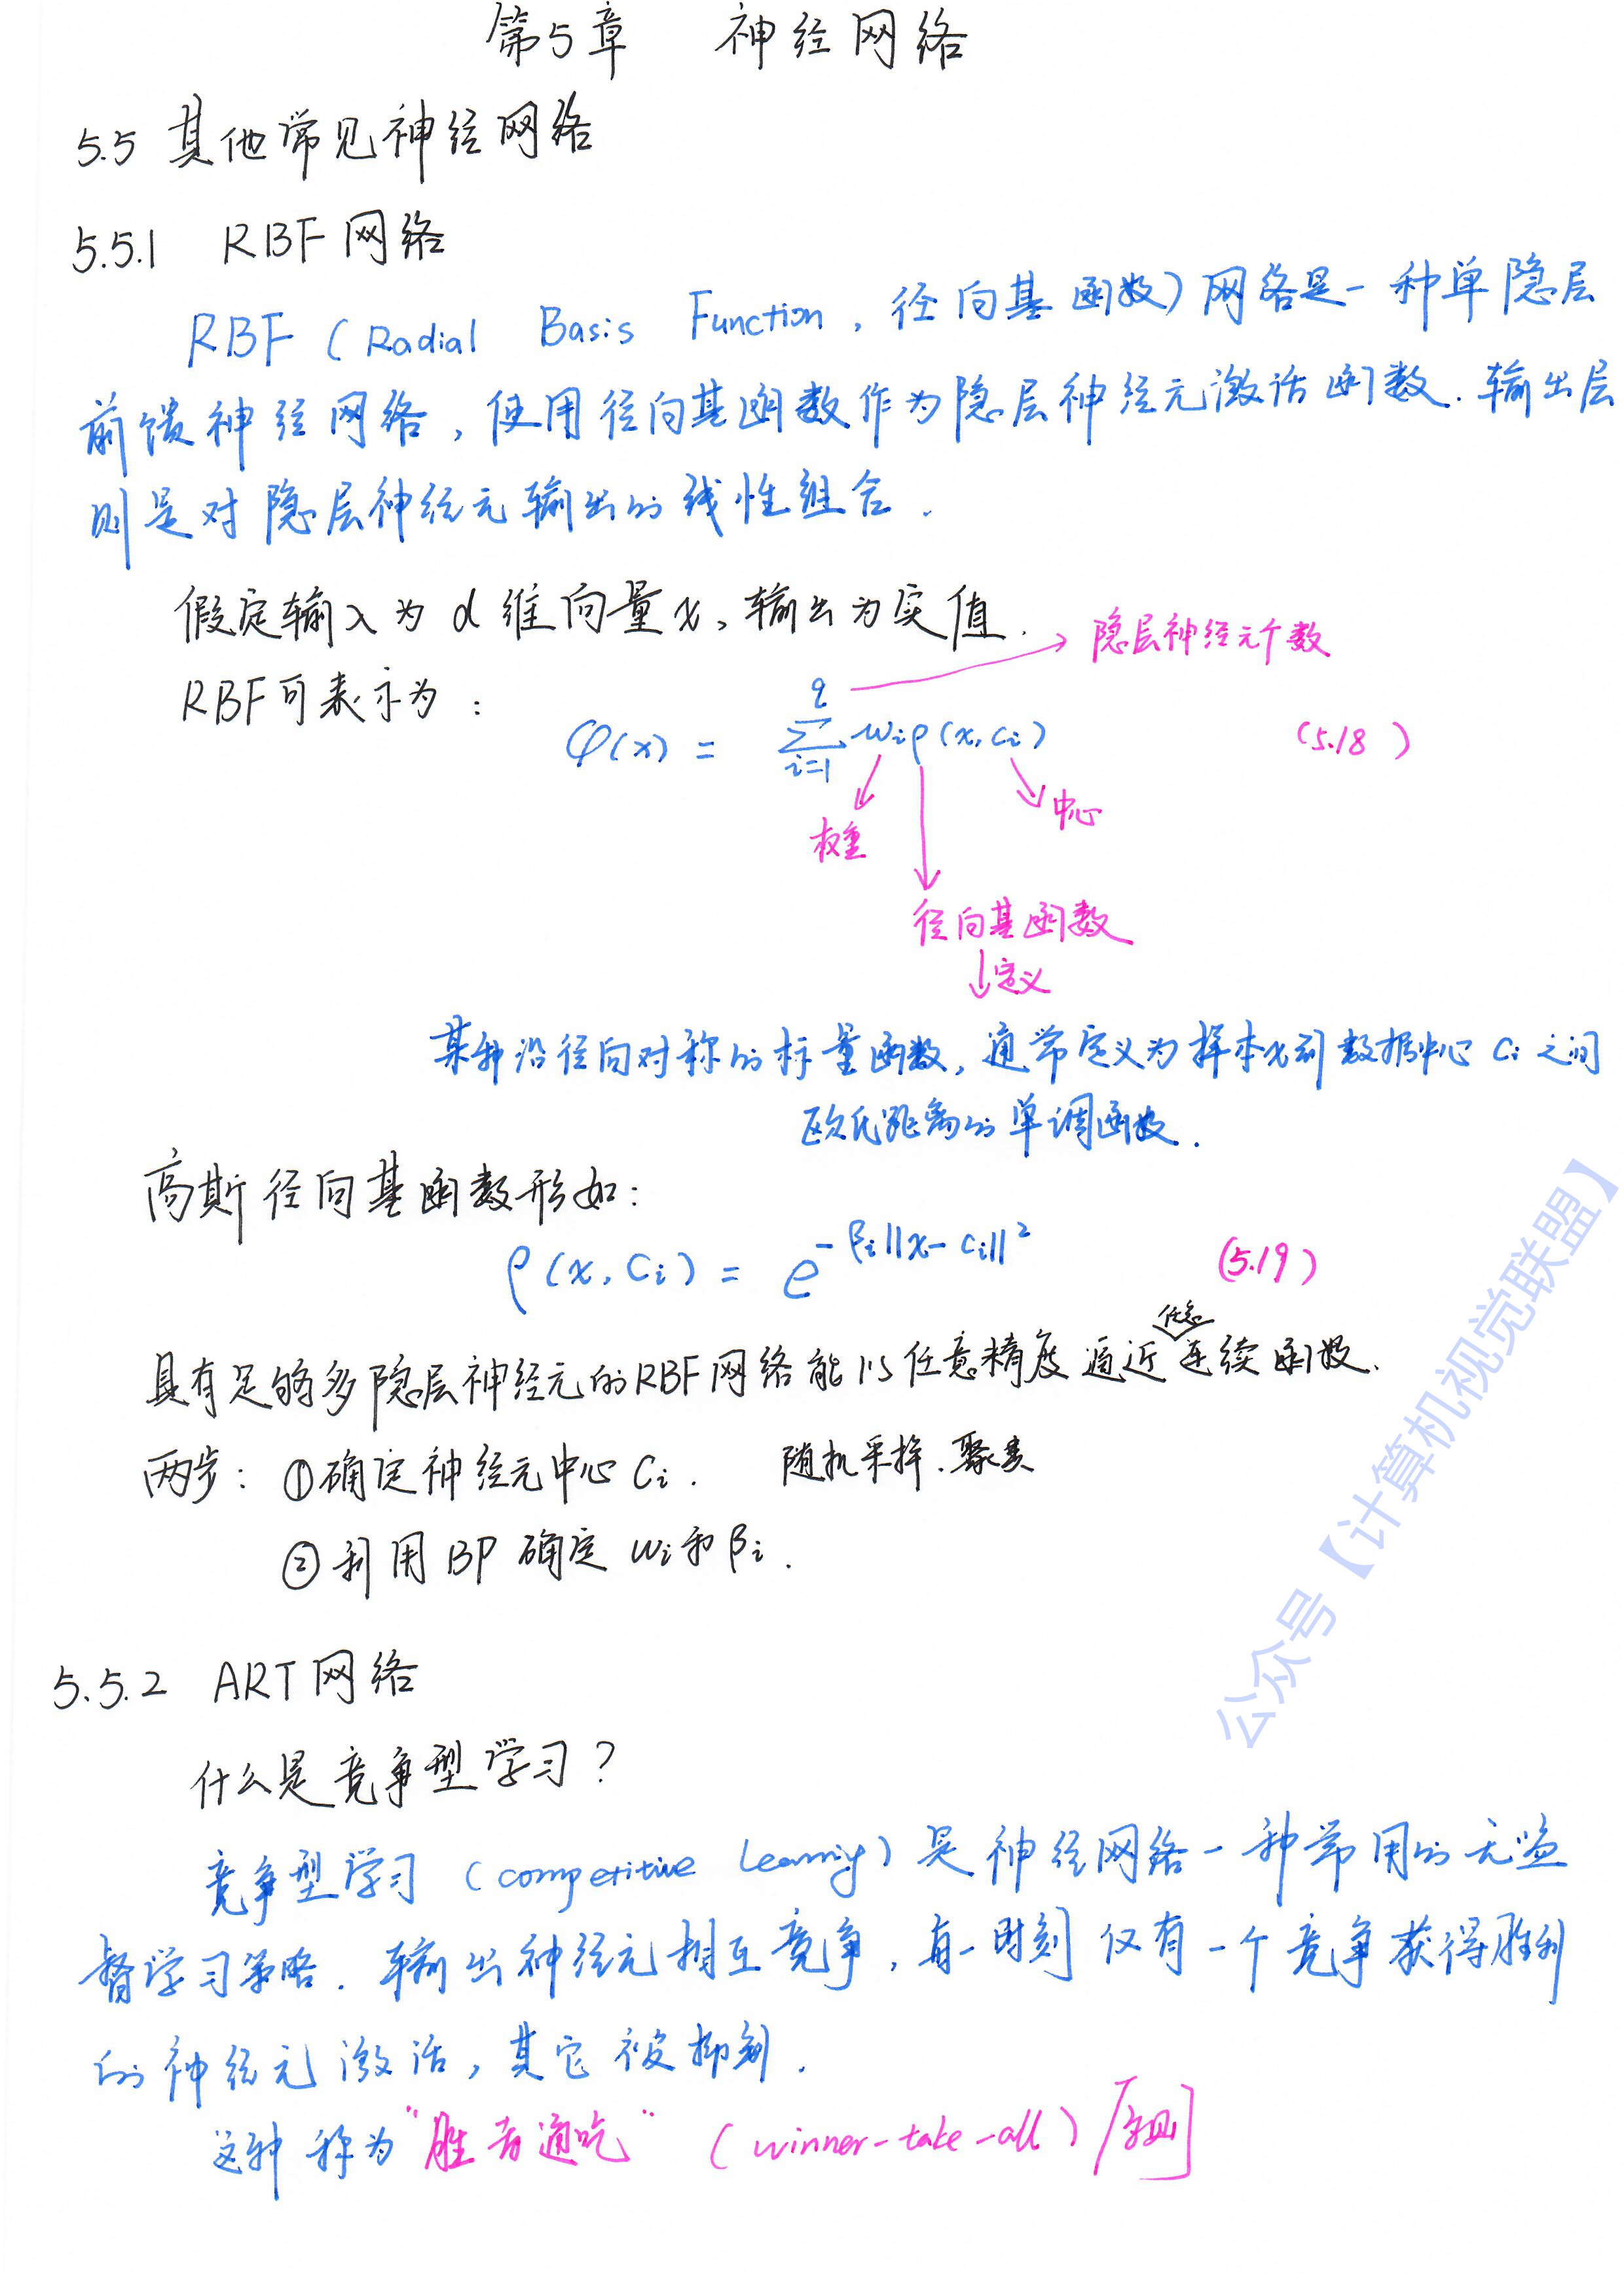 第5章 神经网络
5.5 其他常见神经网络
5.5.1 RBF网络
RBF (Radial Basis Function, 径向基函数) 网络是一种单隐层
前馈神经网络, 使用径向基函数作为隐层神经元激活函数. 输出层
则是对隐层神经元输出的线性组合.
假定输入为 d 维向量 x, 输出为实值.
隐层神经元个数
RBF可表示为:
φ(x) = ∑_{i=1}^{q} w_i ρ(x, c_i) (5.18)
权重
中心
径向基函数
↓定义
某种沿径向对称的标量函数, 通常定义为样本x到数据中心 c_i 之间
欧氏距离的单调函数.
高斯径向基函数形如:
ρ(x, c_i) = e^{-β_i||x-c_i||²} (5.19)
任意
具有足够多隐层神经元的RBF网络能以任意精度逼近连续函数.
两步: ①确定神经元中心 c_i. 随机采样、聚类
②利用BP确定 w_i和β_i.
5.5.2 ART网络
什么是竞争型学习?
竞争型学习 (competitive learning) 是神经网络一种常用的无监
督学习策略. 输出神经元相互竞争, 每一时刻仅有一个竞争获得胜利
的神经元激活, 其它被抑制.
这种称为"胜者通吃" (winner-take-all) 原则
公众号【计算机视觉联盟】